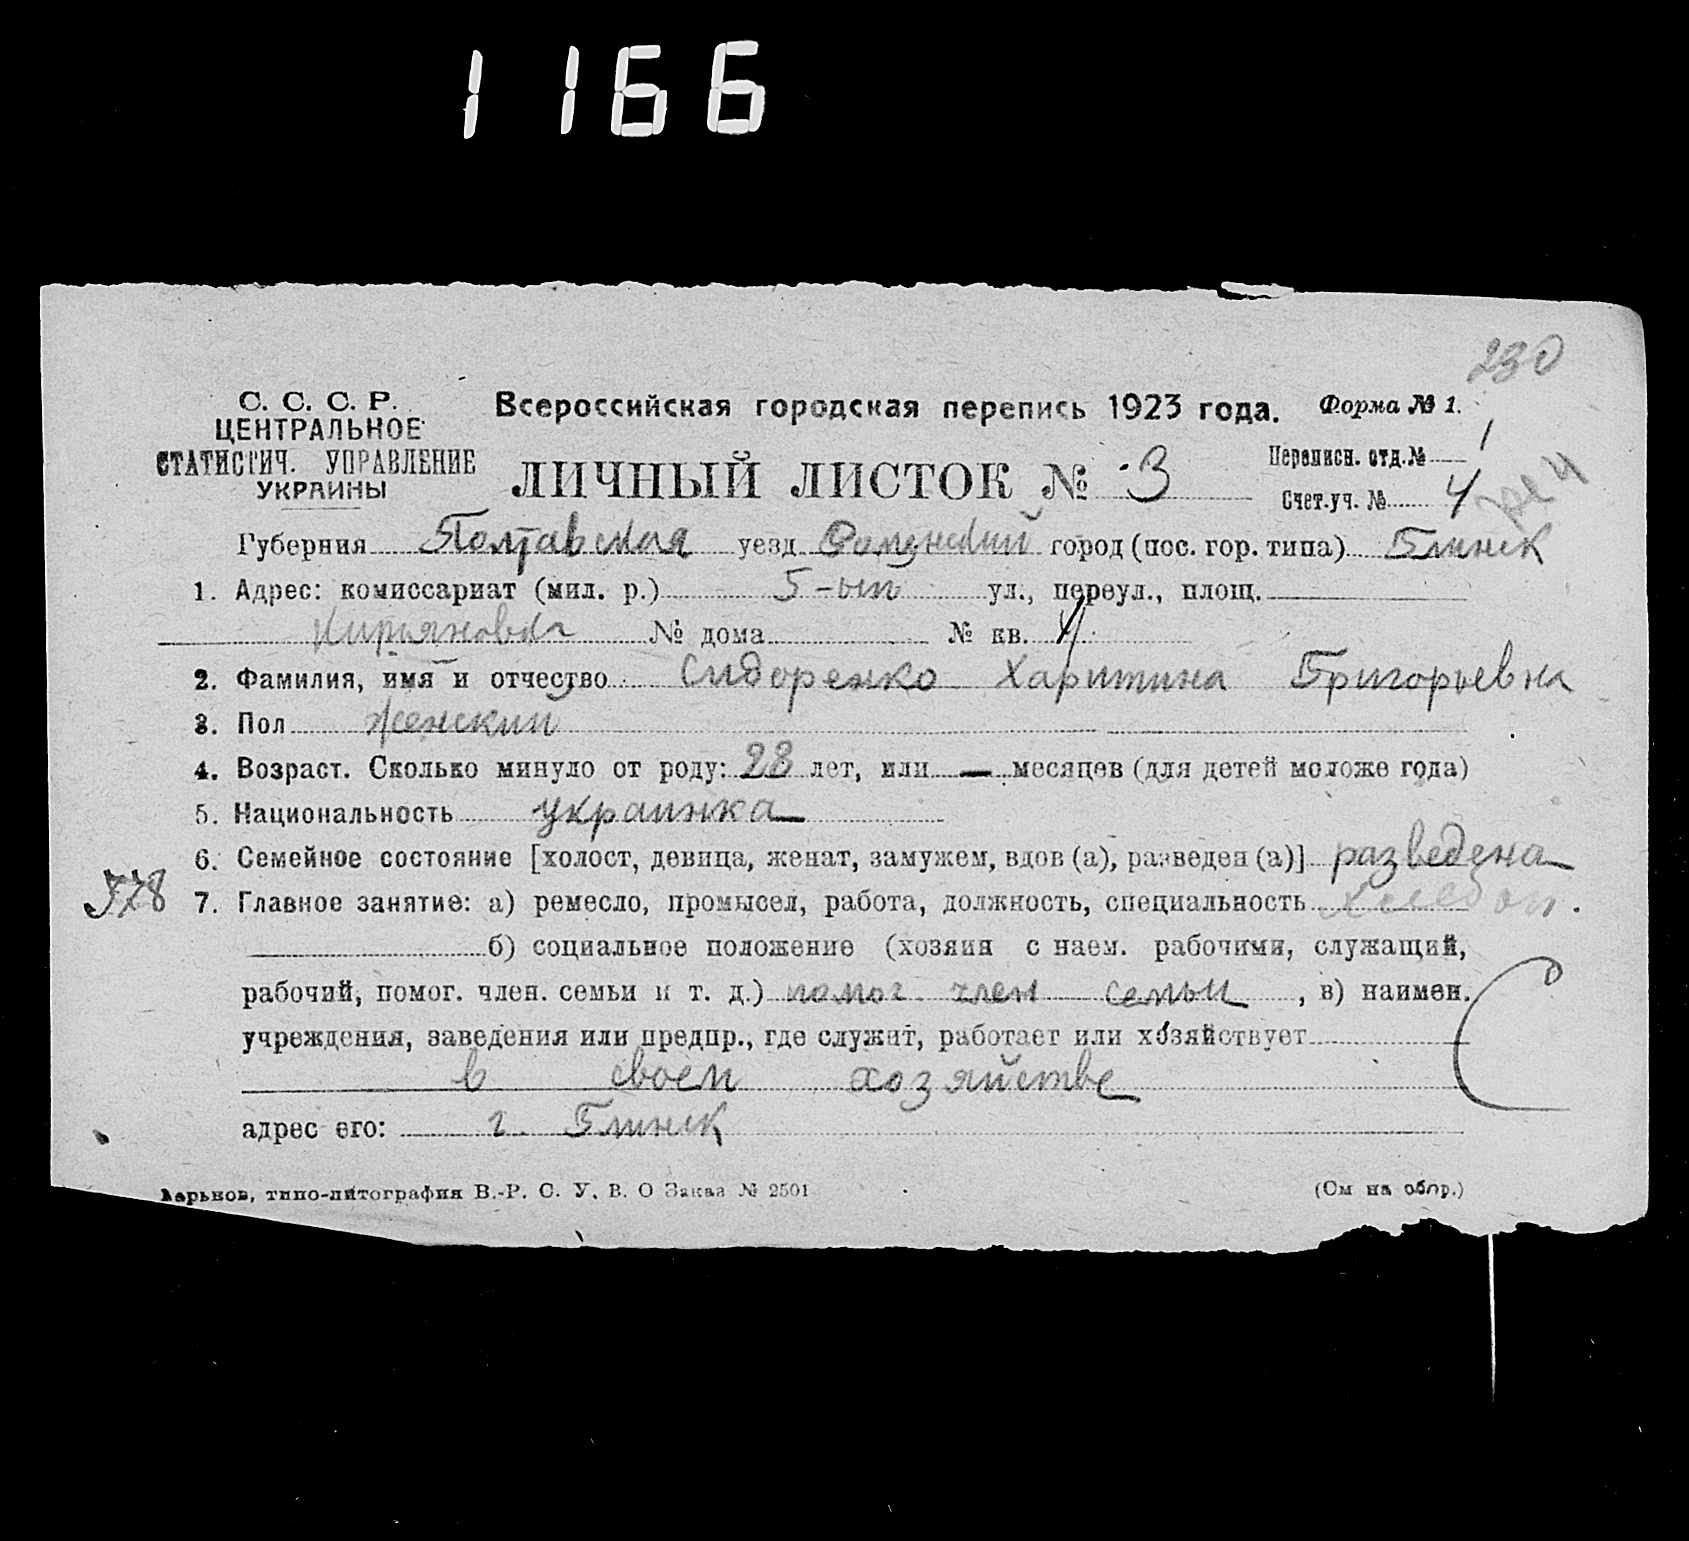 1166
230
С. С. С. Р.
ЦЕНТРАЛЬНОЕ
СТАТИСТИЧ. УПРАВЛЕНИЕ
УКРАИНЫ
Всероссийская городская перепись 1923 года. Форма № 1.
ЛИЧНЫЙ ЛИСТОК № 3
Переписн. отд. № 1
Счет.уч. № 4
Губерния Полтавская уезд Роменский город (пос. гор. типа) Глинск
1. Адрес: комиссариат (мил. р.) 5-ый ул., переул., площ.
№ дома № кв. 4
2. Фамилия, имя и отчество Сидоренко Харитина Григорьевна
3. Пол Женский
4. Возраст. Сколько минуло от роду: 28 лет, или — месяцев (для детей моложе года)
5. Национальность украинка
6. Семейное состояние [холост, девица, женат, замужем, вдов (а), разведен (а)] разведена
7. Главное занятие: а) ремесло, промысел, работа, должность, специальность
б) социальное положение (хозяин с наем. рабочими, служащий,
рабочий, помог. член. семьи и т. д.) помог. член семьи , в) наимен.
учреждения, заведения или предпр., где служит, работает или хозяйствует
в своем хозяйстве
адрес его: г. Глинск
Харьков, типо-литография В.-Р. С. У. В. О Заказ № 2501
(См на обор.)